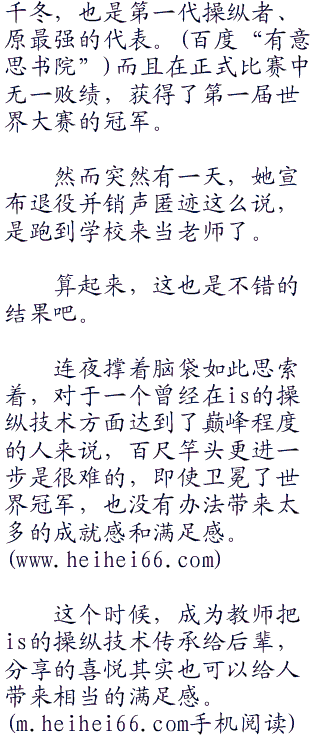 千冬，也是第一代操纵者、
原最强的代表。(百度“有意
思书院”)而且在正式比赛中
无一败绩，获得了第一届世
界大赛的冠军。
然而突然有一天，她宣
布退役并销声匿迹这么说，
是跑到学校来当老师了。
算起来，这也是不错的
结果吧。
连夜撑着脑袋如此思索
着，对于一个曾经在is的操
纵技术方面达到了巅峰程度
的人来说，百尺竿头更进一
步是很难的，即使卫冕了世
界冠军，也没有办法带来太
多的成就感和满足感。
(www.heihei66.com)
这个时候，成为教师把
is的操纵技术传承给后辈，
分享的喜悦其实也可以给人
带来相当的满足感。
(m.heihei66.com手机阅读)